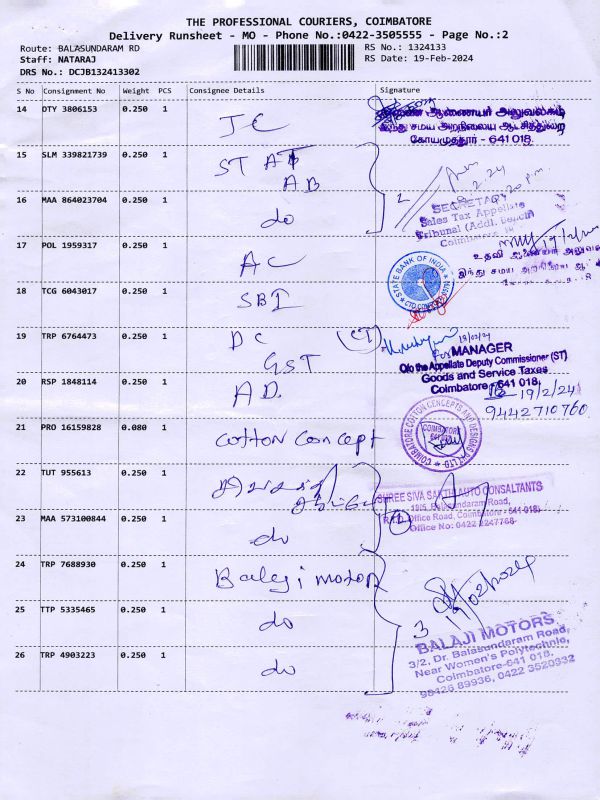 THE PROFESSIONAL COURIERS, COIMBATORE
Delivery Runsheet - MO - Phone No.:0422-3505555 - Page No.:2
Route: BALASUNDARAM RD
RS No.: 1324133
Staff: NATARAJ
RS Date: 19-Feb-2024
DRS No.: DCJB132413302
S No Consignment No Weight PCS Consignee Details Signature
14 DTY 3806153 0.250 1 JC
ஆணையர் அலுவலகம்
இந்து சமய அறநிலைய ஆட்சித்துறை
கோயமுத்தூர் - 641 018.
15 SLM 339821739 0.250 1 STAT
AB
16 MAA 864023704 0.250 1 do
2
SECRETARY
Sales Tax Appellate
Tribunal (Addl. Bench)
Coimbatore
17 POL 1959317 0.250 1 AC
19/2/
உதவி ஆணையர்
இந்து சமய
18 TCG 6043017 0.250 1 SBI
STATE BANK OF INDIA
19 TRP 6764473 0.250 1 DC (CT)
GST
19/02/24
for MANAGER
O/o the Appellate Deputy Commissioner (ST)
Goods and Service Taxes
Coimbatore - 641 018.
20 RSP 1848114 0.250 1 A.D.
19/2/24
9442710760
21 PRO 16159828 0.080 1 Cotton Concept
COIMBATORE COTTON CONCEPTS AND DESIGNS PVT LTD
COIMBATORE
22 TUT 955613 0.250 1
SHREE SIVA SAKTHI AUTO CONSULTANTS
19/5, Balasundaram Road,
R.T.O. Office Road, Coimbatore - 641 018.
Office No: 0422 2247768
23 MAA 573100844 0.250 1 do
24 TRP 7688930 0.250 1 Balaji motors
19/02/2024
25 TTP 5335465 0.250 1 do
3
BALAJI MOTORS
3/2, Dr. Balasundaram Road,
Near Women's Polytechnic,
Coimbatore-641 018.
98426 89936, 0422 3520932
26 TRP 4903223 0.250 1 do